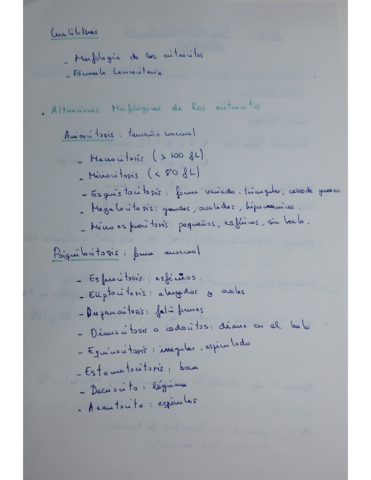 Cualitativas
- Morfología de los eritrocitos
- Fórmula Leucocitaria
• Alteraciones Morfológicas de los eritrocitos
Anisocitosis: tamaño normal
- Macrocitosis (> 100 fL)
- Microcitosis (< 80 fL)
- Esquistocitosis: forma variada. triangular, casco de guerra.
- Megalocitosis: grandes, ovalados, hipercrómicos.
- Microesferocitosis: pequeños, esféricos, sin halo.
Poiquilocitosis: forma anormal
- Esferocitosis: esféricos.
- Eliptocitosis: alargados y ovales
- Drepanocitosis: falciformes
- Dianocitosis o codocitos: diana en el halo
- Equinocitosis: irregular, espiculado
- Estomatocitosis: boca
- Dacriocito: lágrima
- Acantocito: espículas